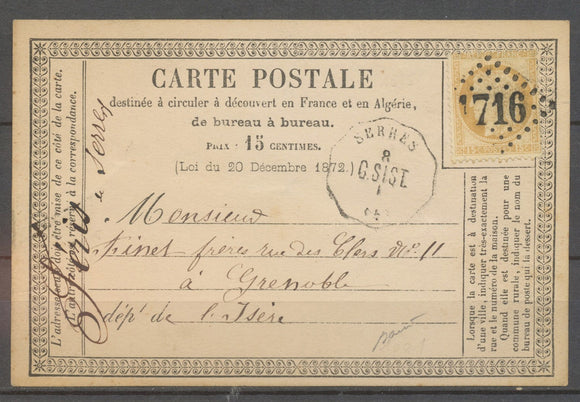 CARTE POSTALE
destinée à circuler à découvert en France et en Algérie,
de bureau à bureau.
PRIX : 15 CENTIMES.
(Loi du 20 Décembre 1872.)
716
SERRES
8
G.SIST.
L'adresse seule doit être mise de ce côté de la carte.
L'autre est réservé à la correspondance.
de Serres
Monsieur
pinet frères rue des Clers N° 11
à Grenoble
dépt de l'Isère
Lorsque la carte est à destination
d'une ville, indiquer très-exactement la
rue et le numéro de la maison.
Quand elle est destinée pour une
commune rurale, indiquer le nom du
bureau de poste qui la dessert.